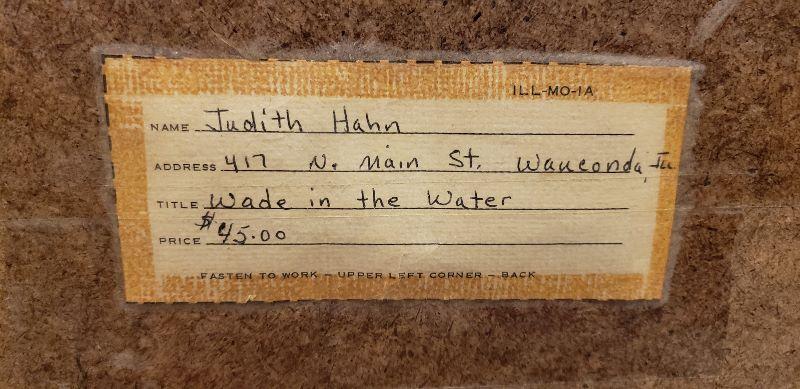 ILL-MO-IA
NAME Judith Hahn
ADDRESS 417 N. Main St. Wauconda, Ill
TITLE Wade in the Water
PRICE $45.00
FASTEN TO WORK – UPPER LEFT CORNER – BACK